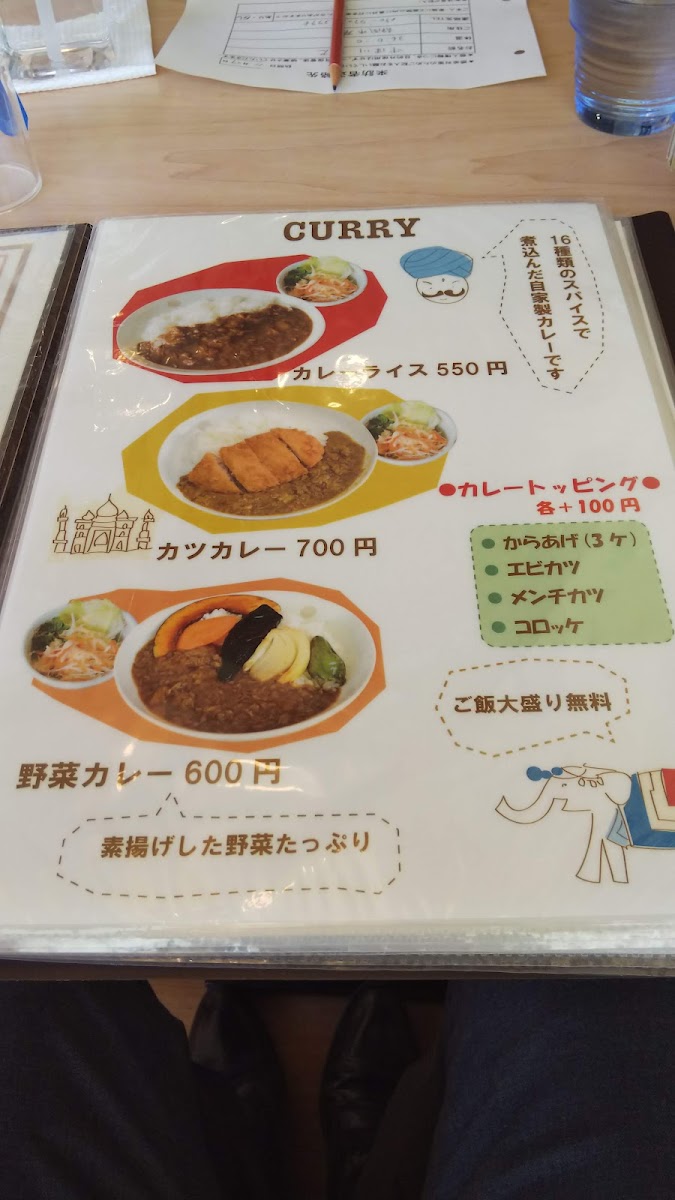 来訪者連絡先
CURRY
16種類のスパイスで
煮込んだ自家製カレーです
カレーライス 550 円
カツカレー 700 円
●カレートッピング●
各＋100円
● からあげ(3ケ)
● エビカツ
● メンチカツ
● コロッケ
ご飯大盛り無料
野菜カレー 600 円
素揚げした野菜たっぷり